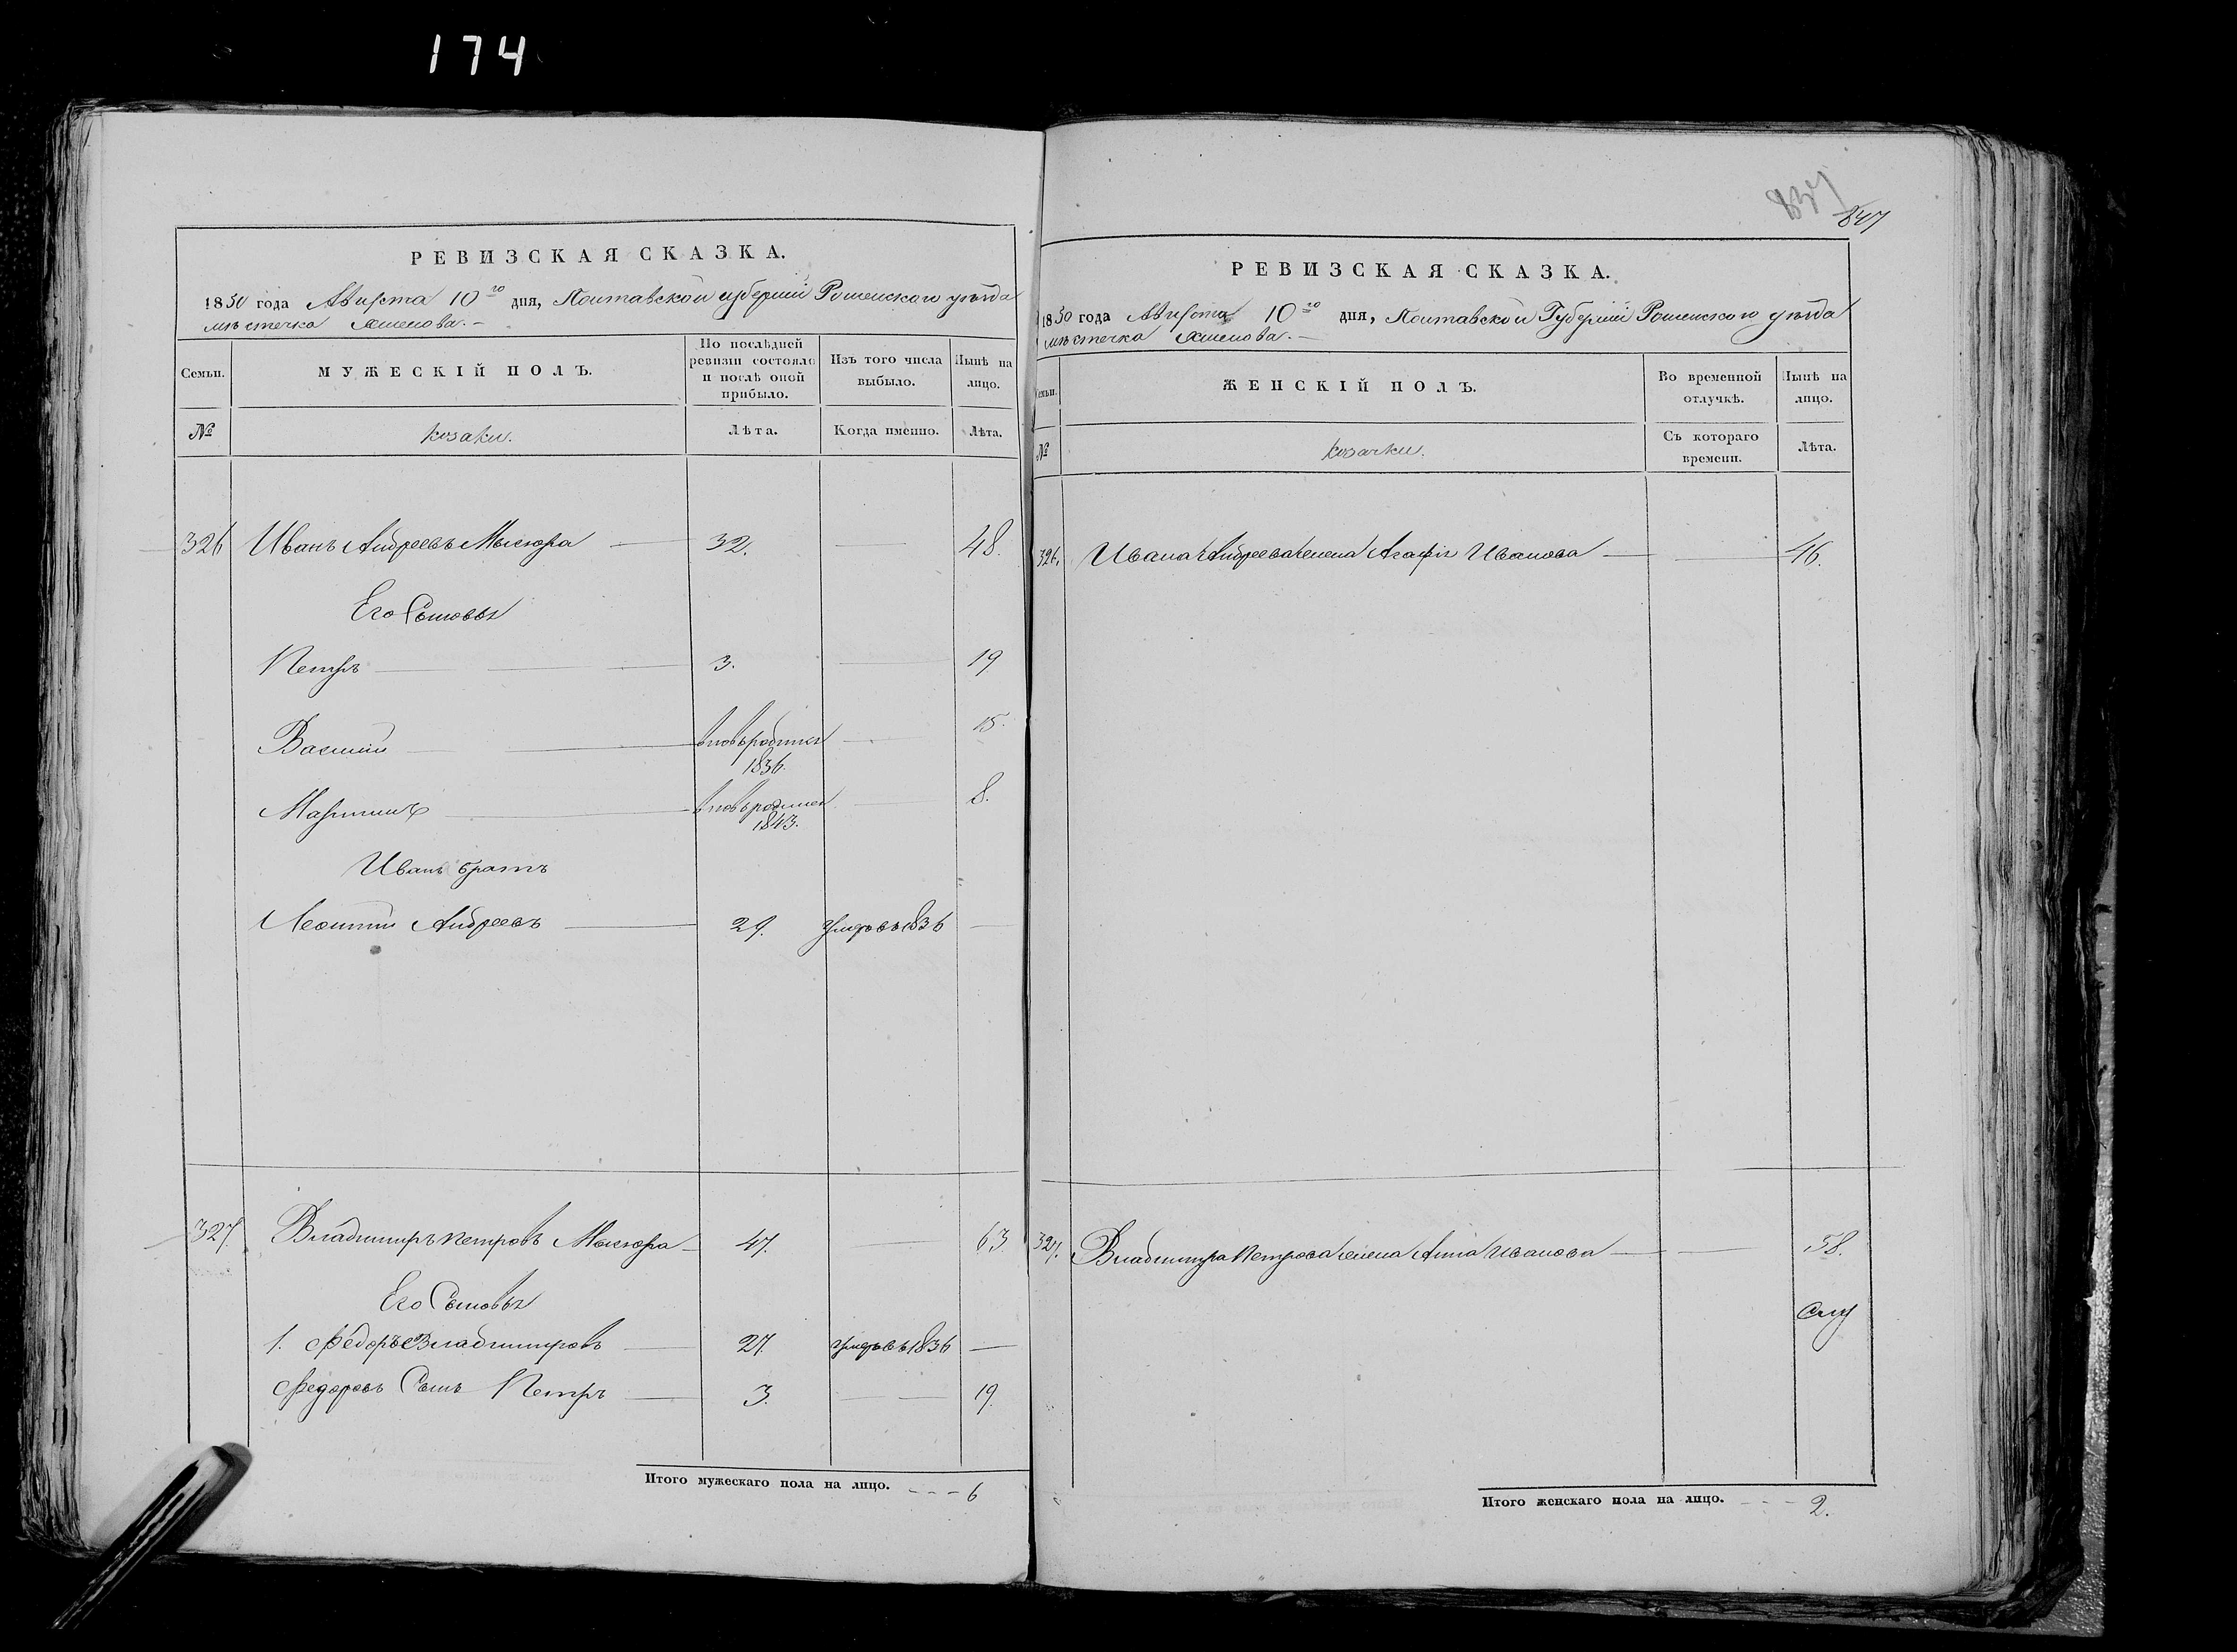 174
РЕВИЗСКАЯ СКАЗКА.
1850 года Августа 10го дня, Полтавской губернии Роменского уѣзда
мѣстечка Хмелова.
Семьи.
МУЖЕСКІЙ ПОЛЪ.
По послѣдней ревизіи состояло и послѣ оной прибыло.
Изъ того числа выбыло.
Нынѣ на лицо.
№
козаки.
Лѣта.
Когда именно.
Лѣта.
326 Иванъ Андреевъ Мысюра 32. 48.
Его Сыновья
Петръ 3. 19
Василий вновьродился 1836. 15.
Мартинъ вновьродился 1843. 8.
Иван братъ
Леонтий Андреевъ 29. умеръ въ 1836
327. Владимиръ Петровъ Мысюра 47. 63.
Его Сыновья
1. Федоръ Владимировъ 27. умеръ въ 1836
Федоровъ Сынъ Петръ 3. 19.
Итого мужескаго пола на лицо. 6
837
847
РЕВИЗСКАЯ СКАЗКА.
1850 года Августа 10го дня, Полтавской Губернии Роменского уѣзда
мѣстечка Хмелова.
Семьи.
ЖЕНСКІЙ ПОЛЪ.
Во временной отлучкѣ.
Нынѣ на лицо.
№
козачки.
Съ котораго времени.
Лѣта.
326. Ивана Андреева жена Агафия Иванова 46.
327. Владимира Петрова жена Анна Иванова 58.
Итого женскаго пола на лицо. 2.